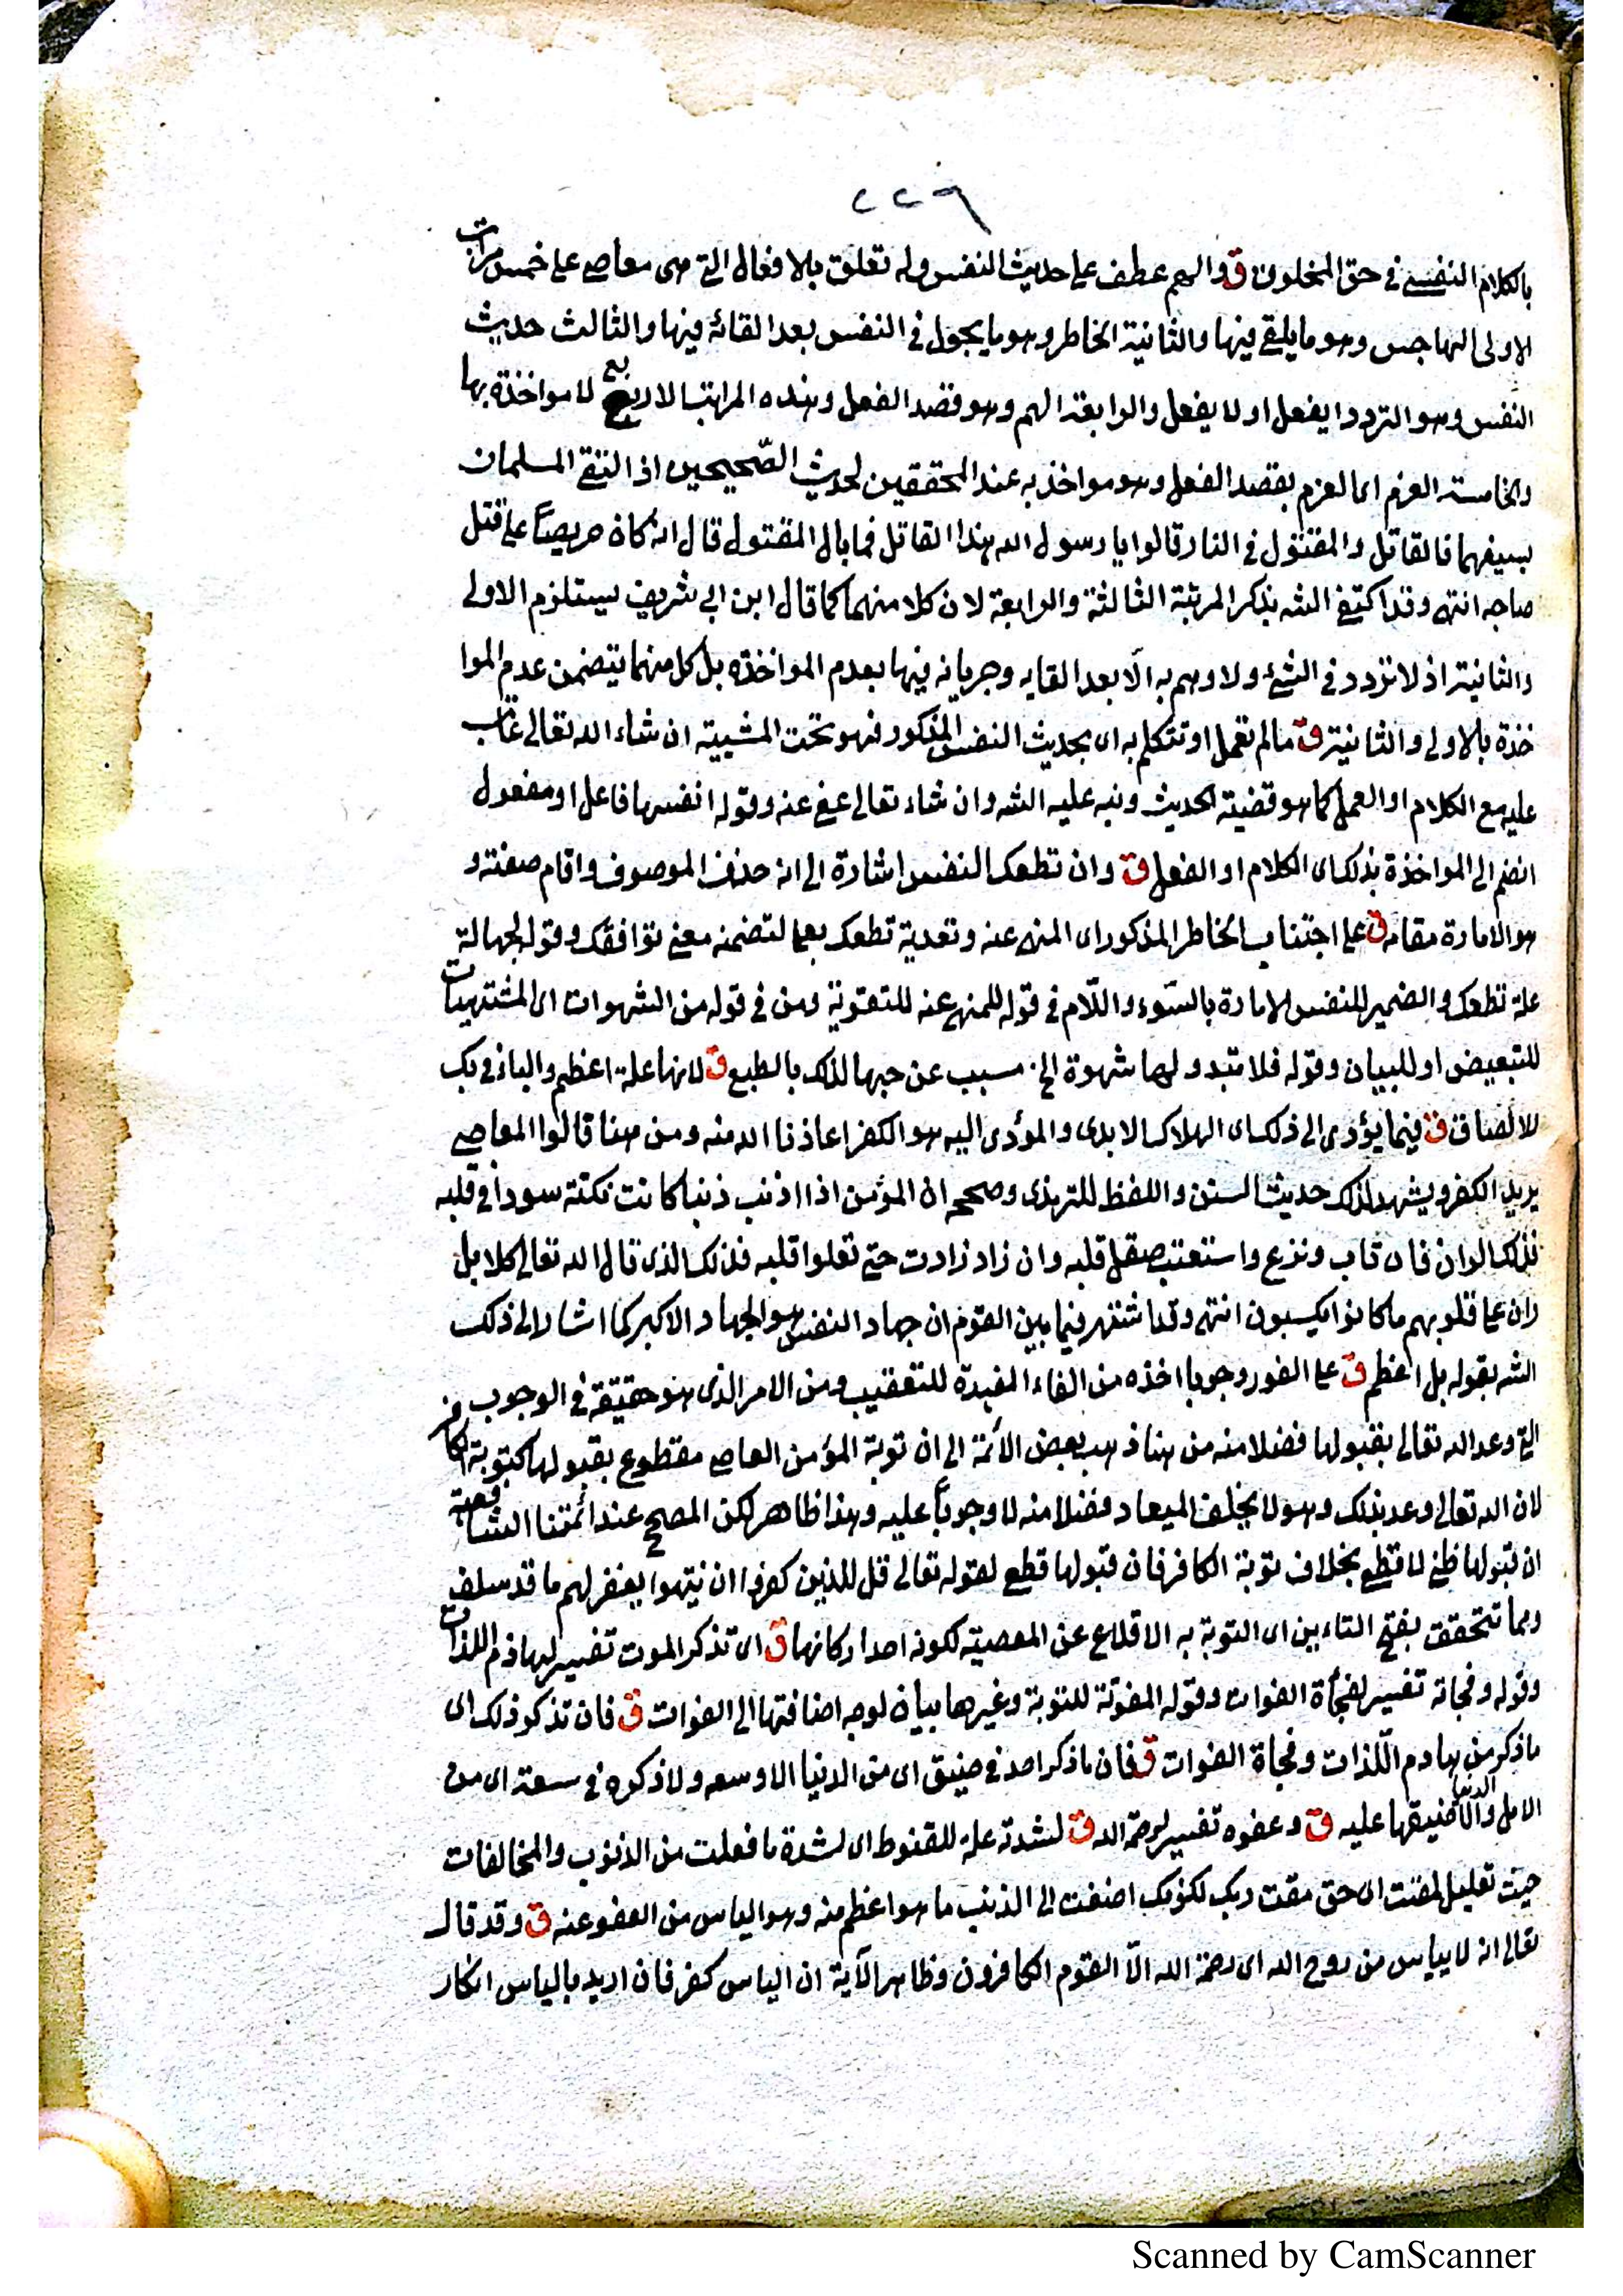 ٢٢٩
بالكلام النفسي في حق المخلوق ق والهم عطف على حديث النفس وله تعلق بالافعال التي هي معاصي على خمس مراتب
الاولى الهاجس وهو ما يلقى فيها والثانية الخاطر وهو ما يجول في النفس بعد القائه فيها والثالث حديث
النفس وهو التردد ايفعل او لا يفعل والرابعة الهم وهو قصد الفعل وهذه المراتب الاربع لا مواخذة بها
والخامسة العزم اى العزم بقصد الفعل وهو مواخذ به عند المحققين لحديث الصّحيحين اذا التقى المسلمان
بسيفهما فالقاتل والمقتول في النار قالوا يا رسول الله هذا القاتل فما بال المقتول قال انه كان حريصاً على قتل
صاحبه انتهى وقد اكتفى الشه بذكر المرتبة الثالثة والرابعة لان كلا منهما كما قال ابن ابي شريف يستلزم الاولى
والثانية اذ لا تردد في الشئ ولا وهم به الّا بعد القايه وجريانه فيها بعدم المواخذة بل كل منهما يتضمن عدم الموا
خذة بالاولى والثانية ق ما لم تعمل او تتكلم به اى بحديث النفس المذكور فهو تحت المشيية ان شاء الله تعالى عاقب
عليه مع الكلام او العمل كما هو قضية الحديث ونبه عليه الشه وان شاء تعالى عفى عنه وقوله انفسها فاعل او مفعول
انضم الى المواخذة بذلك اى الكلام او الفعل ق وان تطعك النفس اشارة الى انه حذف الموصوف واقام صفته و
هو الامارة مقامه ق على اجتناب الخاطر المذكور اى المنهى عنه وتعدية تطعك بعلى لتضمنه معنى توافقك وقوله لجهالة
علة تطعك والضمير للنفس الامارة بالسّوء واللّام في قوله للمنهى عنه للتقوية ومن في قوله من الشهوات اى المشتهيات
للتبعيض او للبيان وقوله فلا تبدو لها شهوة الخ مسبب عن حبها لذلك بالطبع ق لانها علة اعظم والباء في بك
للالصاق ق فيما يؤدى الى ذلك اى الهلاك الابدى والمؤدى اليه هو الكفر اعاذنا الله منه ومن هنا قالوا المعاصى
بريد الكفر ويشهد لذلك حديث السنن واللفظ للترمذى وصححه ان المؤمن اذا اذنب ذنبا كانت نكتة سودا في قلبه
فذلك الران فان تاب ونزع واستعتب صقل قلبه وان زاد زادت حتى تعلوا قلبه فذلك الذى قال الله تعالى كلا بل
ران على قلوبهم ما كانوا يكسبون انتهى وقد اشتهر فيما بين القوم ان جهاد النفس هو الجهاد الاكبر كما اشار الى ذلك
الشه بقوله بل اعظم ق على الفور وجوبا اخذه من الفاء المفيدة للتعقيب ومن الامر الذى هو حقيقة في الوجوب ق
التى وعد الله تعالى بقبولها فضلا منه من هنا ذهب بعض الأئمة الى ان توبة المؤمن العاصى مقطوع بقبولها كتوبة الكافر
لان الله تعالى وعد بذلك وهو لا يخلف الميعاد فضلا منه لا وجوباً عليه وهذا ظاهر لكن المصحح عند ائمتنا الشافعية
ان قبولها ظنى لا قطعى بخلاف توبة الكافر فان قبولها قطع لقوله تعالى قل للذين كفروا ان ينتهوا يغفر لهم ما قد سلف
وبما تتحقق بفتح التاءين اى التوبة به الاقلاع عن المعصية لكونه احد اركانها ق اى تذكر الموت تفسير لهاذم اللذات
وقوله وفجاته تفسير لفجأة الفوات وقوله المفوتة للتوبة وغيرها بيان لوجه اضافتها الى الفوات ق فان تذكر ذلك اى
ما ذكر من هادم اللّذات وفجاة الفوات ق فان ما ذكر احد في ضيق اى من الدنيا الا وسعه ولا ذكره في سعة اى من
الامل والدنيا الا ضيقها عليه ق وعفوه تفسير لرحمة الله ق لشدته علة للقنوط اى لشدة ما فعلت من الذنوب والمخالفات
حيث تعليل لمقت اى حق مقت ربك لكونك اضفت الى الذنب ما هو اعظم منه وهو الياس من العفو عنه ق وقد قال
تعالى انه لا يياس من روح الله اى رحمة الله الّا القوم الكافرون وظاهر الآية ان الياس كفر فان اريد بالياس انكار
Scanned by CamScanner